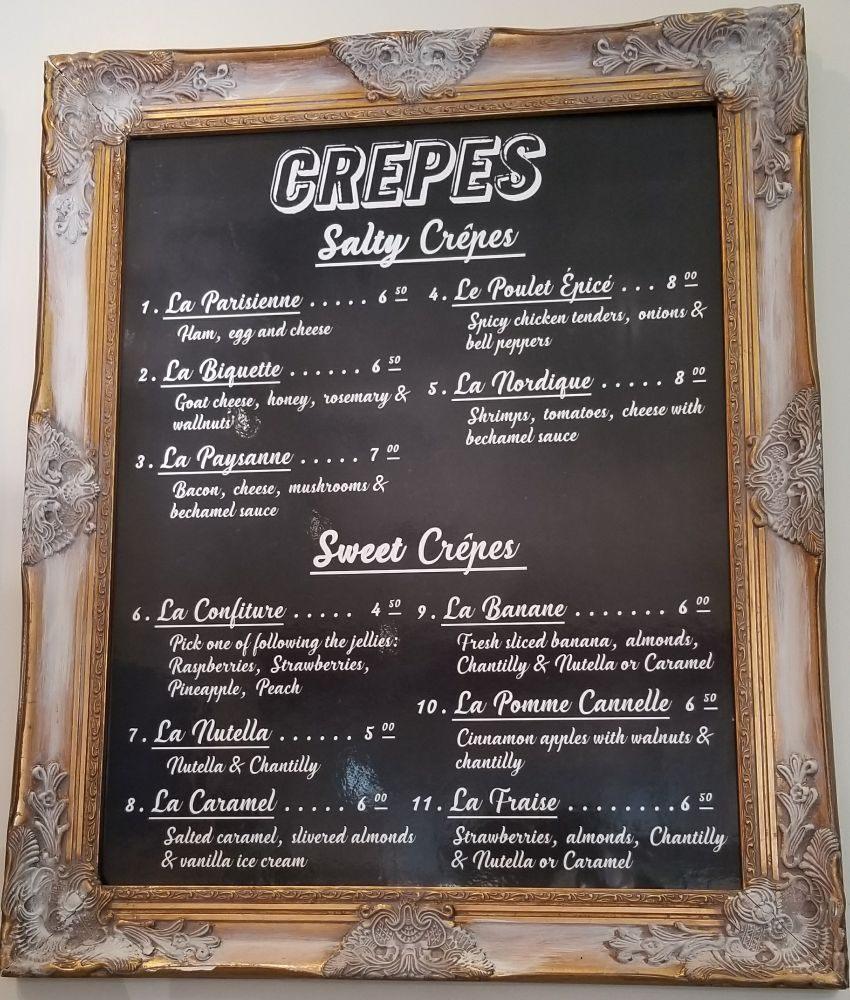 CREPES
Salty Crêpes
1. La Parisienne ..... 6 50
Ham, egg and cheese
2. La Biquette ...... 6 50
Goat cheese, honey, rosemary &
wallnuts
3. La Paysanne ..... 7 00
Bacon, cheese, mushrooms &
bechamel sauce
4. Le Poulet Épicé ... 8 00
Spicy chicken tenders, onions &
bell peppers
5. La Nordique ..... 8 00
Shrimps, tomatoes, cheese with
bechamel sauce
Sweet Crêpes
6. La Confiture ..... 4 50
Pick one of following the jellies:
Raspberries, Strawberries,
Pineapple, Peach
7. La Nutella ...... 5 00
Nutella & Chantilly
8. La Caramel ..... 6 00
Salted caramel, slivered almonds
& vanilla ice cream
9. La Banane ....... 6 00
Fresh sliced banana, almonds,
Chantilly & Nutella or Caramel
10. La Pomme Cannelle 6 50
Cinnamon apples with walnuts &
chantilly
11. La Fraise ........ 6 50
Strawberries, almonds, Chantilly
& Nutella or Caramel